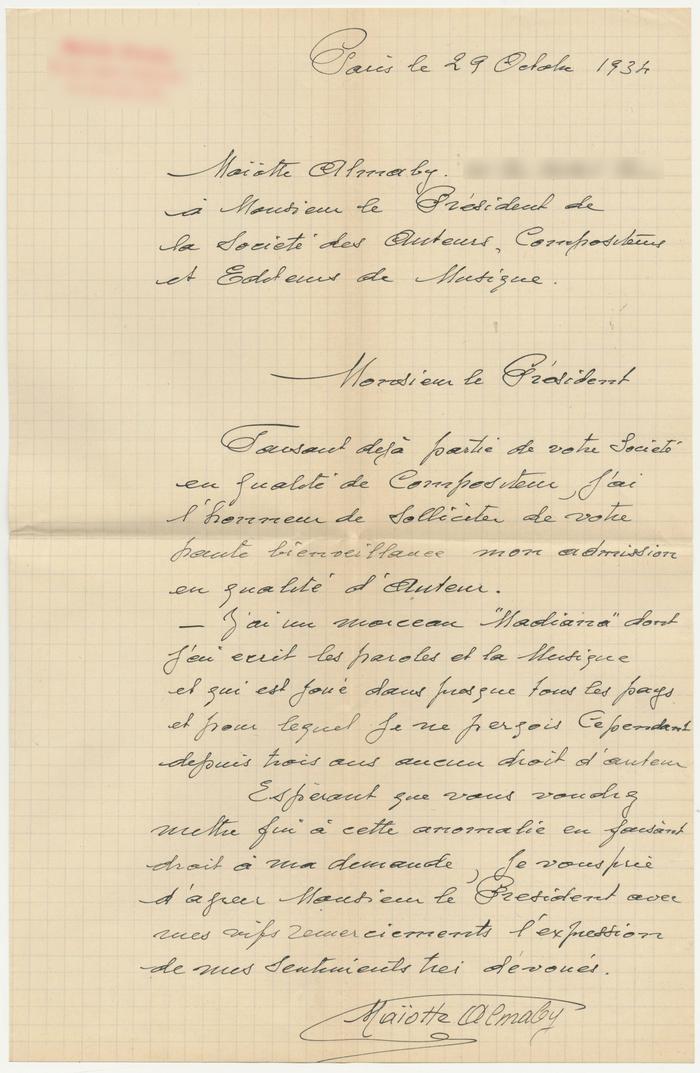 Paris le 29 Octobre 1934
Maïotte Almaby.
à Monsieur le Président de
la Société des Auteurs, Compositeurs
et Editeurs de Musique.
Monsieur le Président
Faisant dejà partie de votre Société
en qualité de Compositeur, j'ai
l'honneur de solliciter de votre
haute bienveillance mon admission
en qualité d'Auteur.
— J'ai un morceau "Madiana" dont
j'ai ecrit les paroles et la Musique
et qui est joué dans presque tous les pays
et pour lequel je ne perçois Cependant
depuis trois ans aucun droit d'auteur
Espérant que vous voudrez
mettre fin à cette anomalie en faisant
droit à ma demande, je vous prie
d'agreer Monsieur le President avec
mes vifs remerciements l'expression
de mes Sentiments trei dévoués.
Maïotte Almaby